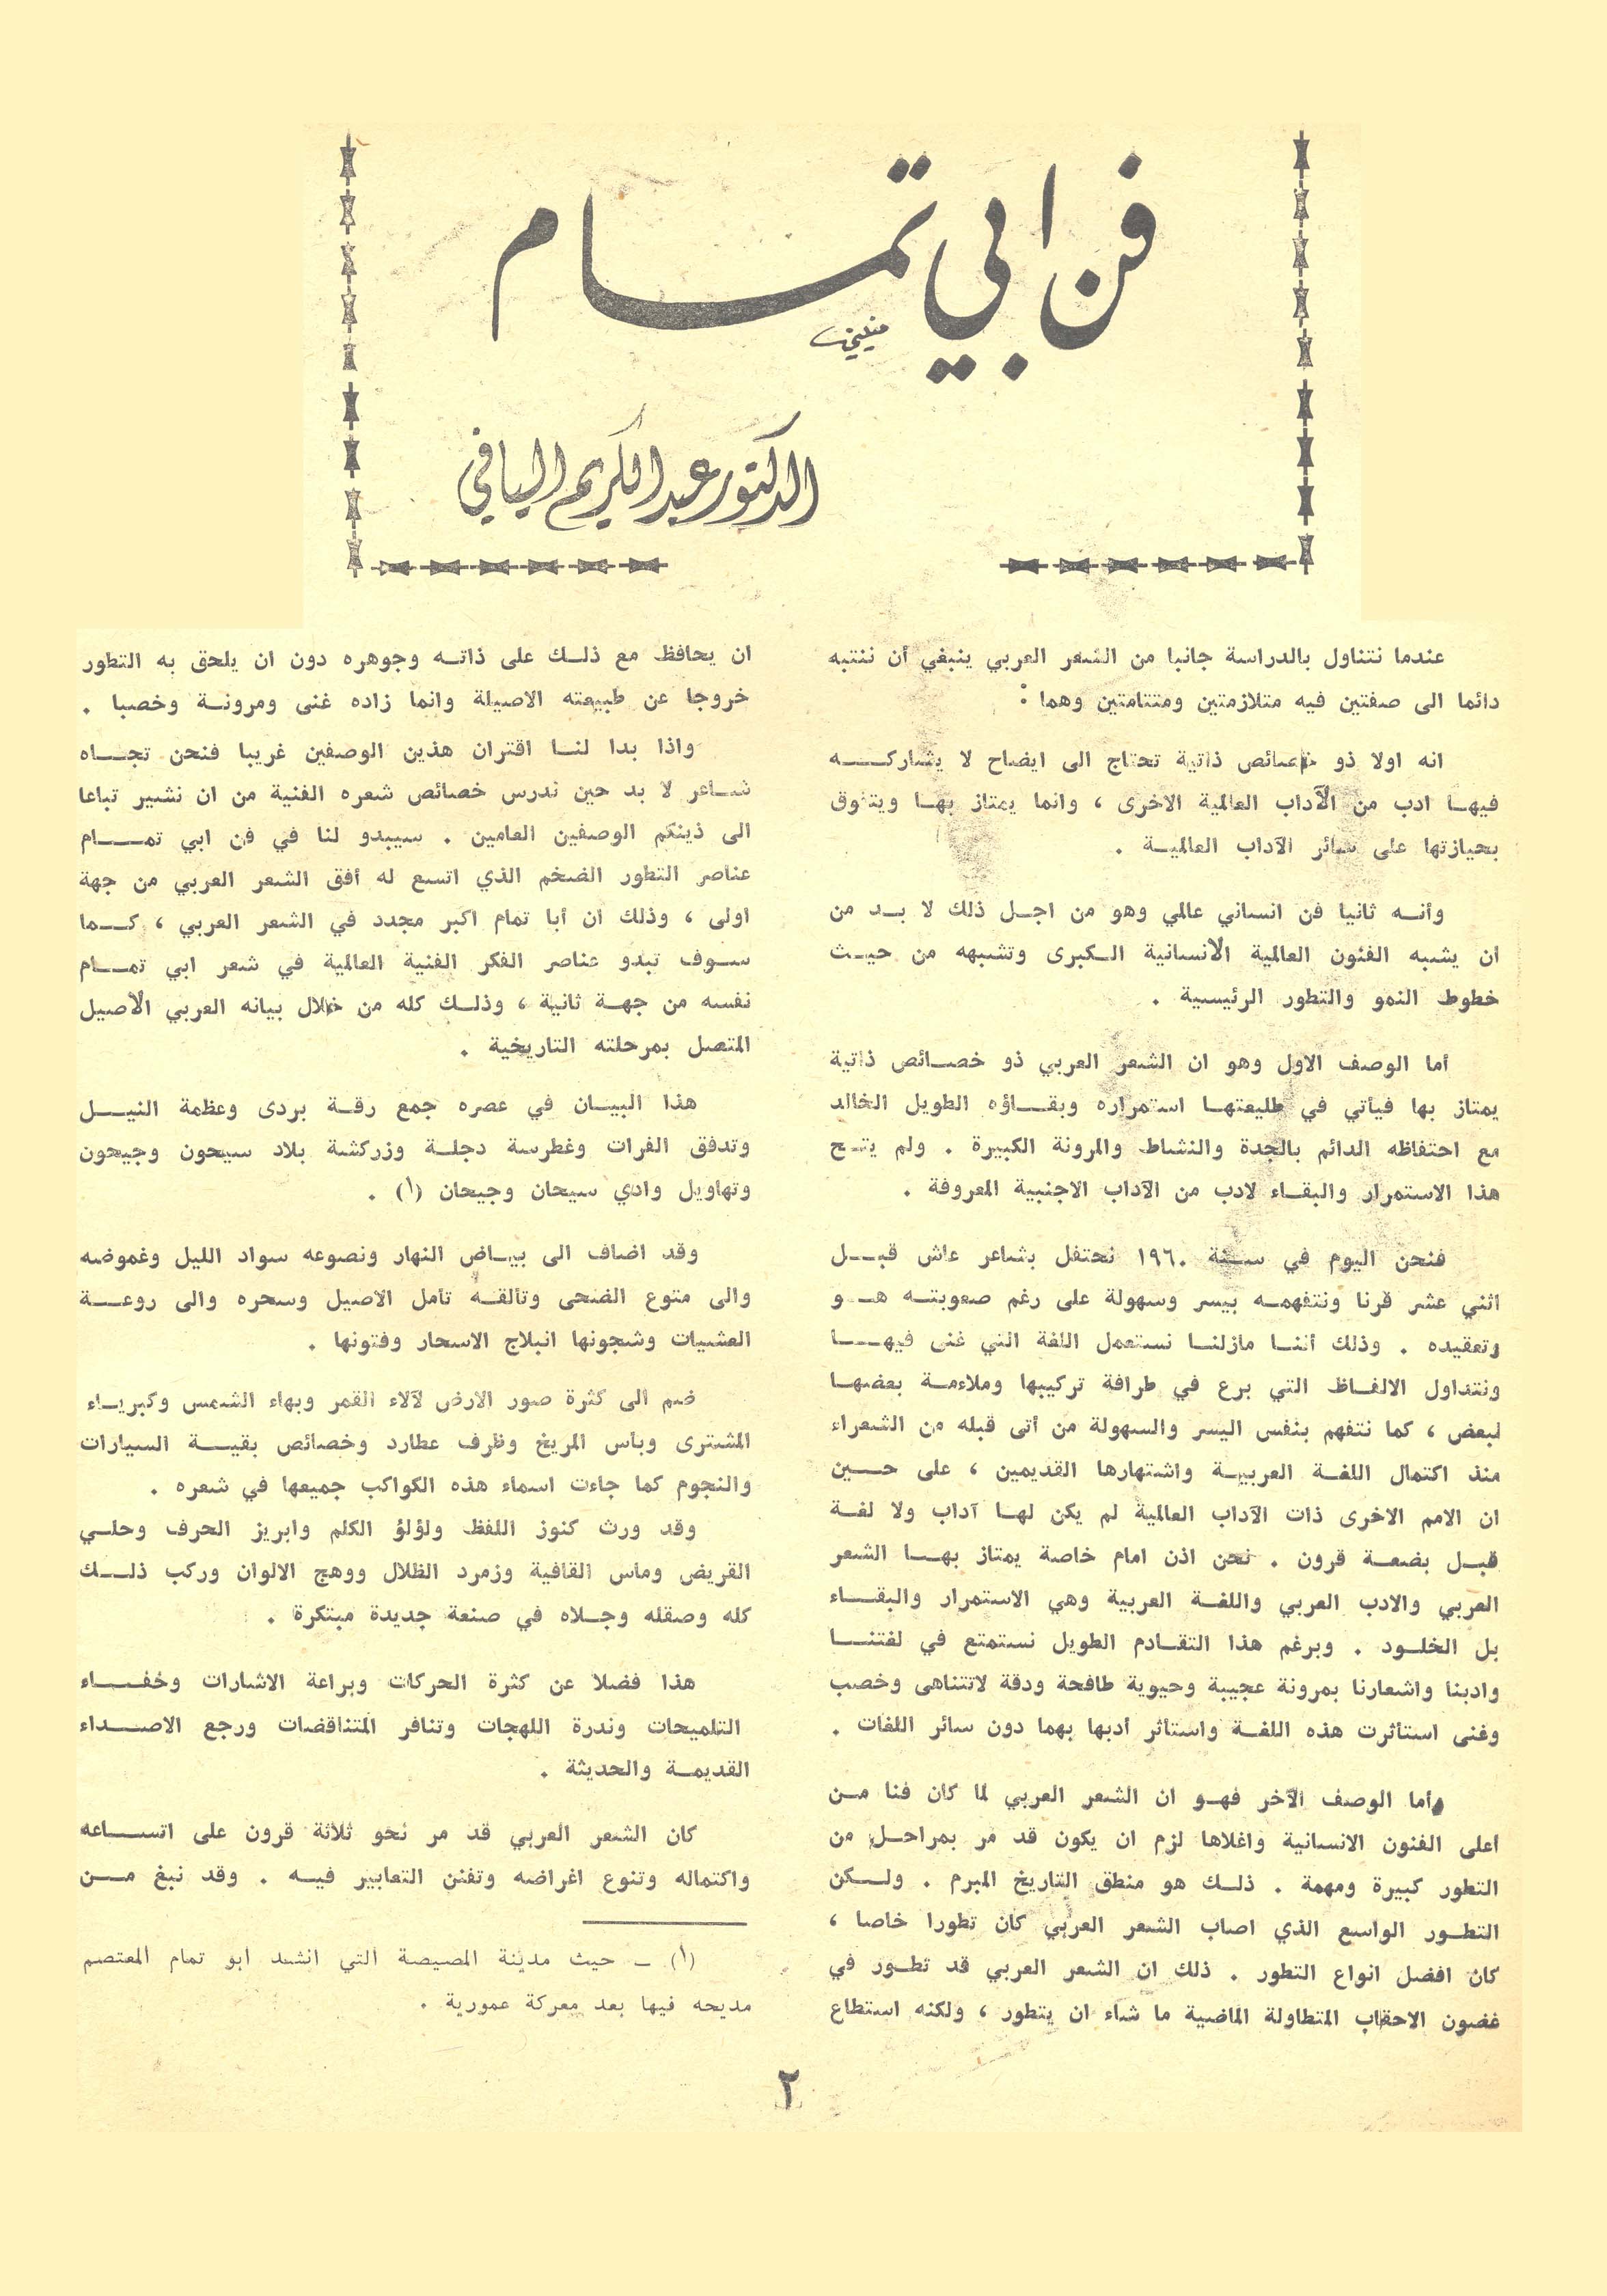 فن ابي تمام
الدكتور عبد الكريم اليافي
عندما نتناول بالدراسة جانبا من الشعر العربي ينبغي أن ننتبه
دائما الى صفتين فيه متلازمتين ومتتامتين وهما :
انه اولا ذو خصائص ذاتية تحتاج الى ايضاح لا يشاركه
فيها ادب من الآداب العالمية الاخرى ، وانما يمتاز بها ويتفوق
بحيازتها على سائر الآداب العالمية .
وأنه ثانيا فن انساني عالمي وهو من اجل ذلك لا بد من
ان يشبه الفنون العالمية الانسانية الكبرى وتشبهه من حيث
خطوط النمو والتطور الرئيسية .
أما الوصف الاول وهو ان الشعر العربي ذو خصائص ذاتية
يمتاز بها فيأتي في طليعتها استمراره وبقاؤه الطويل الخالد
مع احتفاظه الدائم بالجدة والنشاط والمرونة الكبيرة . ولم يتح
هذا الاستمرار والبقاء لادب من الآداب الاجنبية المعروفة .
فنحن اليوم في سنة ١٩٦٠ نحتفل بشاعر عاش قبل
اثني عشر قرنا ونتفهمه بيسر وسهولة على رغم صعوبته هو
وتعقيده . وذلك أننا مازلنا نستعمل اللغة التي غنى فيها
ونتداول الالفاظ التي برع في طرافة تركيبها وملاءمة بعضها
لبعض ، كما نتفهم بنفس اليسر والسهولة من أتى قبله من الشعراء
منذ اكتمال اللغة العربية واشتهارها القديمين ، على حين
ان الامم الاخرى ذات الآداب العالمية لم يكن لها آداب ولا لغة
قبل بضعة قرون . نحن اذن امام خاصة يمتاز بها الشعر
العربي والادب العربي واللغة العربية وهي الاستمرار والبقاء
بل الخلود . وبرغم هذا التقادم الطويل نستمتع في لغتنا
وادبنا واشعارنا بمرونة عجيبة وحيوية طافحة ودقة لاتتناهى وخصب
وغنى استأثرت هذه اللغة واستأثر أدبها بهما دون سائر اللغات .
وأما الوصف الآخر فهو ان الشعر العربي لما كان فنا من
أعلى الفنون الانسانية واغلاها لزم ان يكون قد مر بمراحل من
التطور كبيرة ومهمة . ذلك هو منطق التاريخ المبرم . ولكن
التطور الواسع الذي اصاب الشعر العربي كان تطورا خاصا ،
كان افضل انواع التطور . ذلك ان الشعر العربي قد تطور في
غضون الاحقاب المتطاولة الماضية ما شاء ان يتطور ، ولكنه استطاع
ان يحافظ مع ذلك على ذاته وجوهره دون ان يلحق به التطور
خروجا عن طبيعته الاصيلة وانما زاده غنى ومرونة وخصبا .
واذا بدا لنا اقتران هذين الوصفين غريبا فنحن تجاه
شاعر لا بد حين ندرس خصائص شعره الفنية من ان نشير تباعا
الى ذينكم الوصفين العامين . سيبدو لنا في فن ابي تمام
عناصر التطور الضخم الذي اتسع له أفق الشعر العربي من جهة
أولى ، وذلك أن أبا تمام أكبر مجدد في الشعر العربي ، كما
سوف تبدو عناصر الفكر الفنية العالمية في شعر ابي تمام
نفسه من جهة ثانية ، وذلك كله من خلال بيانه العربي الأصيل
المتصل بمرحلته التاريخية .
هذا البيان في عصره جمع رقة بردى وعظمة النيل
وتدفق الفرات وغطرسة دجلة وزركشة بلاد سيحون وجيحون
وتهاويل وادي سيحان وجيحان (١) .
وقد اضاف الى بياض النهار ونصوعه سواد الليل وغموضه
والى متوع الضحى وتألقه تأمل الأصيل وسحره والى روعة
العشيات وشجونها انبلاج الاسحار وفتونها .
ضم الى كثرة صور الارض لآلاء القمر وبهاء الشمس وكبرياء
المشترى وبأس المريخ وظرف عطارد وخصائص بقية السيارات
والنجوم كما جاءت اسماء هذه الكواكب جميعها في شعره .
وقد ورث كنوز اللفظ ولؤلؤ الكلم وابريز الحرف وحلي
القريض وماس القافية وزمرد الظلال ووهج الالوان وركب ذلك
كله وصقله وجلاه في صنعة جديدة مبتكرة .
هذا فضلا عن كثرة الحركات وبراعة الاشارات وخفاء
التلميحات وندرة اللهجات وتنافر المتناقضات ورجع الاصداء
القديمة والحديثة .
كان الشعر العربي قد مر نحو ثلاثة قرون على اتساعه
واكتماله وتنوع اغراضه وتفنن التعابير فيه . وقد نبغ من
(١) ـ حيث مدينة المصيصة التي انشد أبو تمام المعتصم
مديحه فيها بعد معركة عمورية .
٢